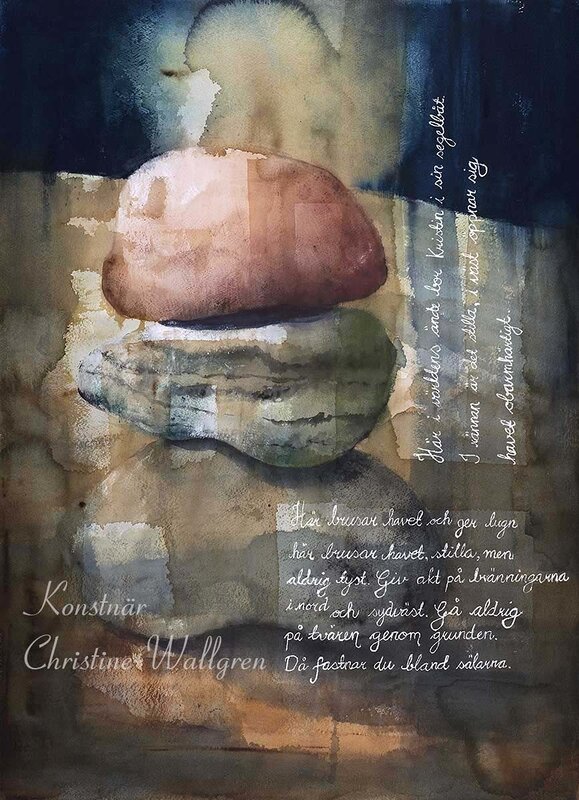 Här i världens ände bor Kristin i sin segelbåt.
I vännan av det stilla, i väst öppnar sig
havet obarmhärtigt.
Här brusar havet och ger lugn
här brusar havet, stilla, men
aldrig tyst. Giv akt på bränningarna
i nord och sydväst. Gå aldrig
på tvären genom grunden.
Då fastnar du bland sälarna.
Konstnär
Christine Wallgren